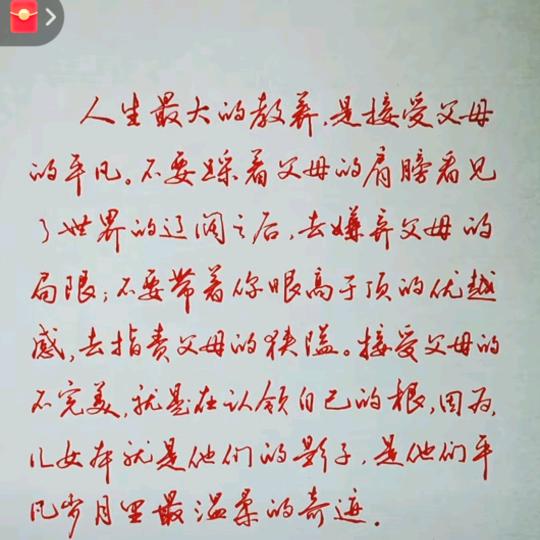 人生最大的教养，是接受父母
的平凡。不要踩着父母的肩膀看见
了世界的辽阔之后，去嫌弃父母的
局限；不要带着你眼高于顶的优越
感，去指责父母的狭隘。接受父母的
不完美，就是在认领自己的根，因为，
儿女本就是他们的影子，是他们平
凡岁月里最温柔的奇迹．